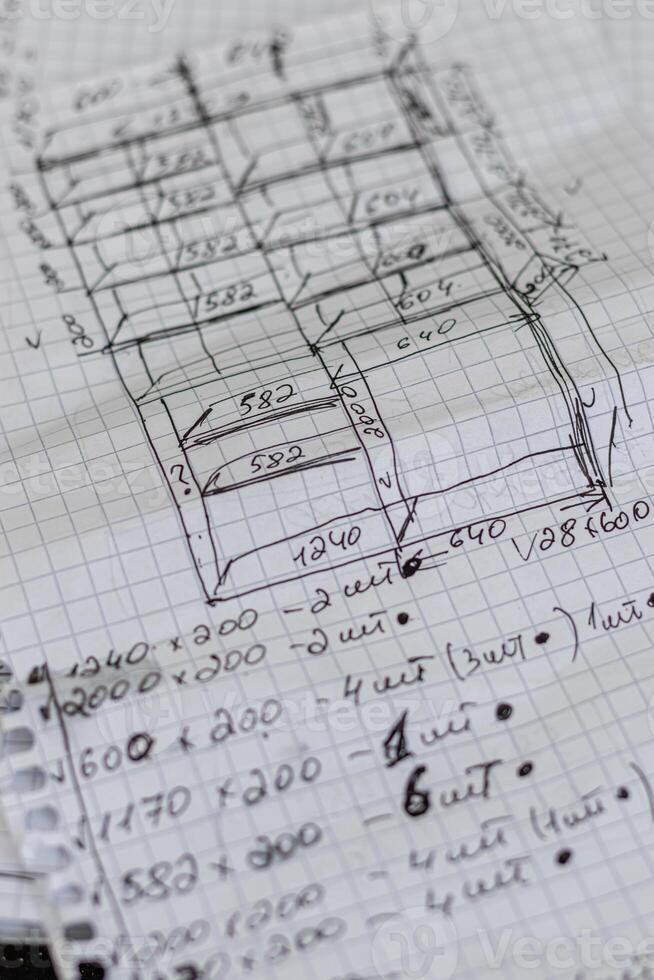 600 640
582 604
582 604
582 600
582 604
200 640
582 2000
?
582
1240 640 √28×600
1240 × 200 - 2 шт
2000 × 200 - 2 шт •
600 × 200 - 4 шт (3 шт •) 1 шт •
1170 × 200 - 1 шт •
582 × 200 - 6 шт •
200 × 200 - 4 шт (1 шт •)
× 200 - 4 шт •